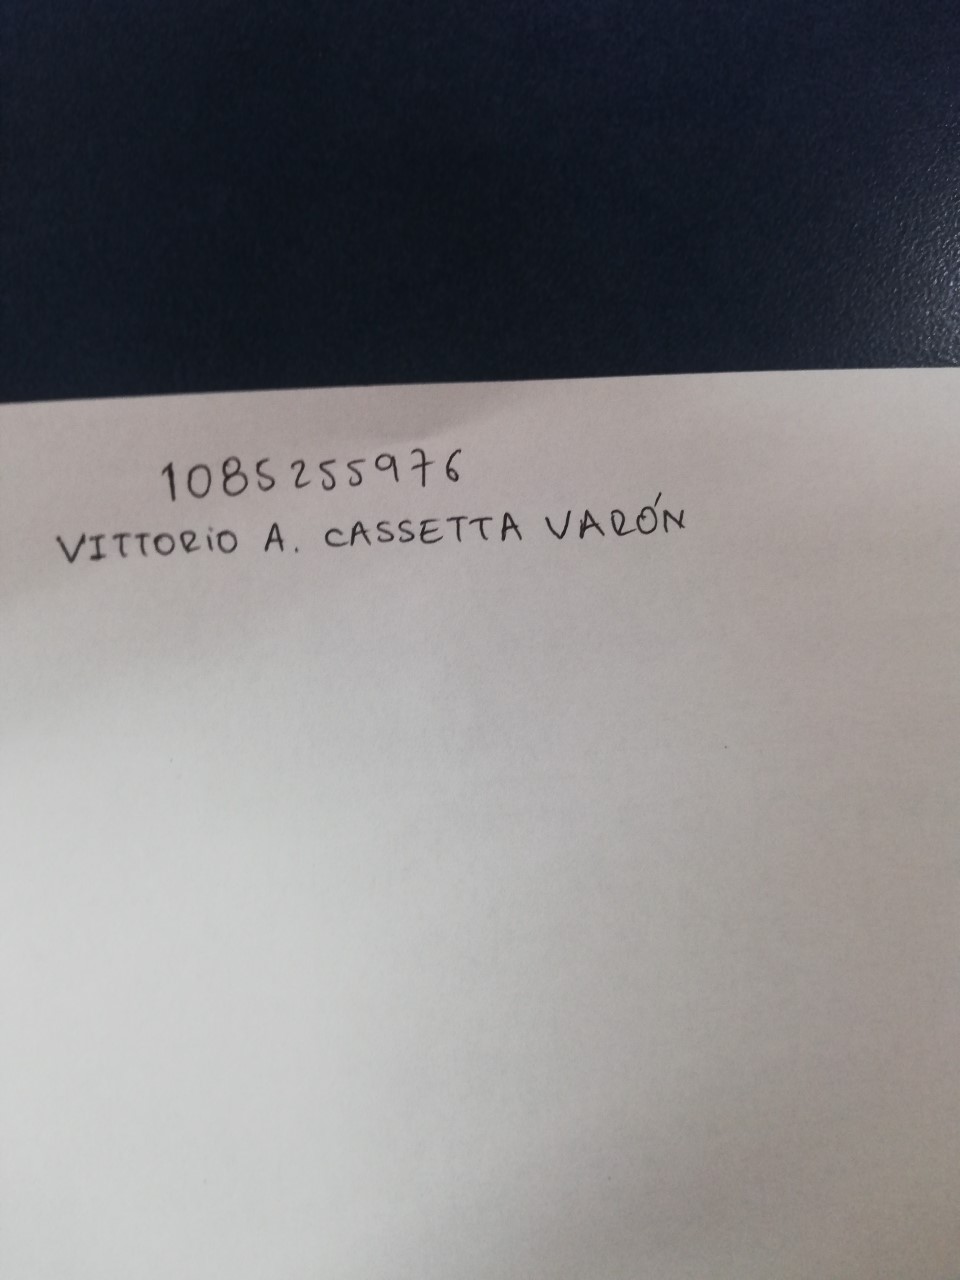 1085255976
VITTORIO A. CASSETTA VARÓN